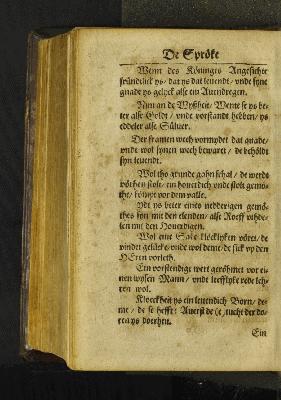 De Spröke
Wenn des Köninges Angesichte
fründtlick ys / dat ys dat leuendt / vnde syne
gnade ys gelyck alse ein Auendregen.
Nim an de Wyßheit / Wente se ys be-
ter alse Goldt / vnde vorstandt hebben / ys
eddeler alse Süluer.
Der framen wech vormydet dat quade /
vnde wol synen wech bewaret / de behöldt
syn leuendt.
Wol tho grunde gahn schal / de werdt
vörhen stolt / ein houerdich vnde stolt gemö-
the / kümpt vor dem valle.
ydt ys beter eines nedderigen gemö-
thes syn mit den elenden / alse Roeff vthde-
len mit den Houerdigen.
Wol eine Sake klöcklyken vöret / de
vindet gelücke / vnde wol deme / de sick vp den
HEren vorleth.
Ein vorstendige wert geröhmet vor ei-
nen wysen Mann / vnde leefflyke rede leh-
ren wol.
Kloeckheit ys ein leuendich Born / de-
me / de se hefft: Auerst de tucht der do-
ren ys doerheit.
Ein